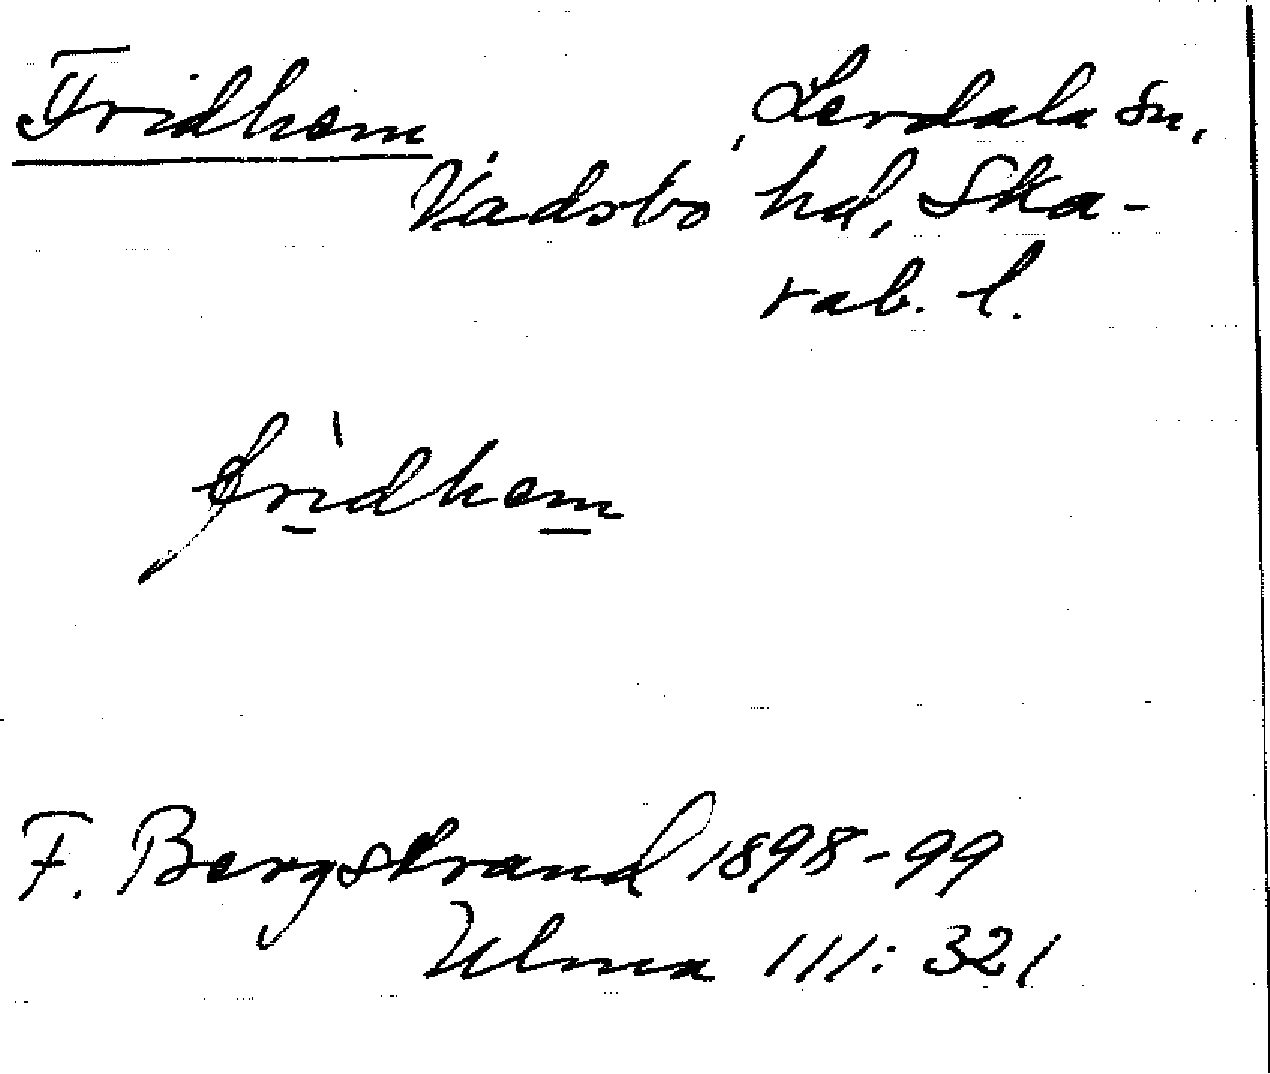 Fridhem Lerdala sn,
Vadsbo hd, Ska-
rab. l.
fridhem
F. Bergstrand 1898-99
Ulma 111:321